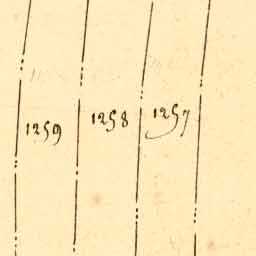 1259 1258 1257